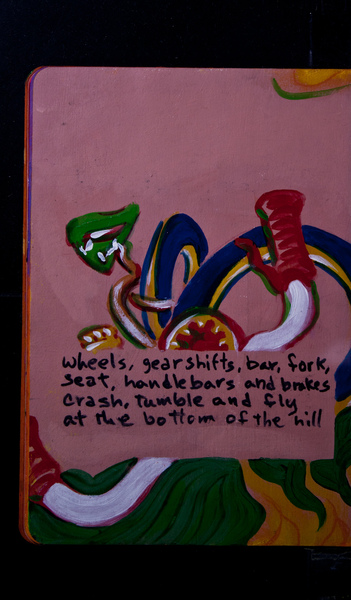 Wheels, gearshifts, bar, fork,
Seat, handlebars and brakes
Crash, Tumble and fly
at the bottom of the hill